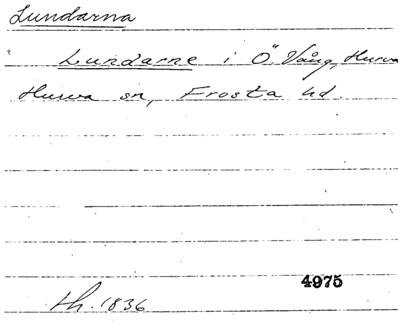 Lundarna
Lundarne i Ö. Vång, Hurva
Hurva sn, Frosta hd.
4975
Lh. 1836